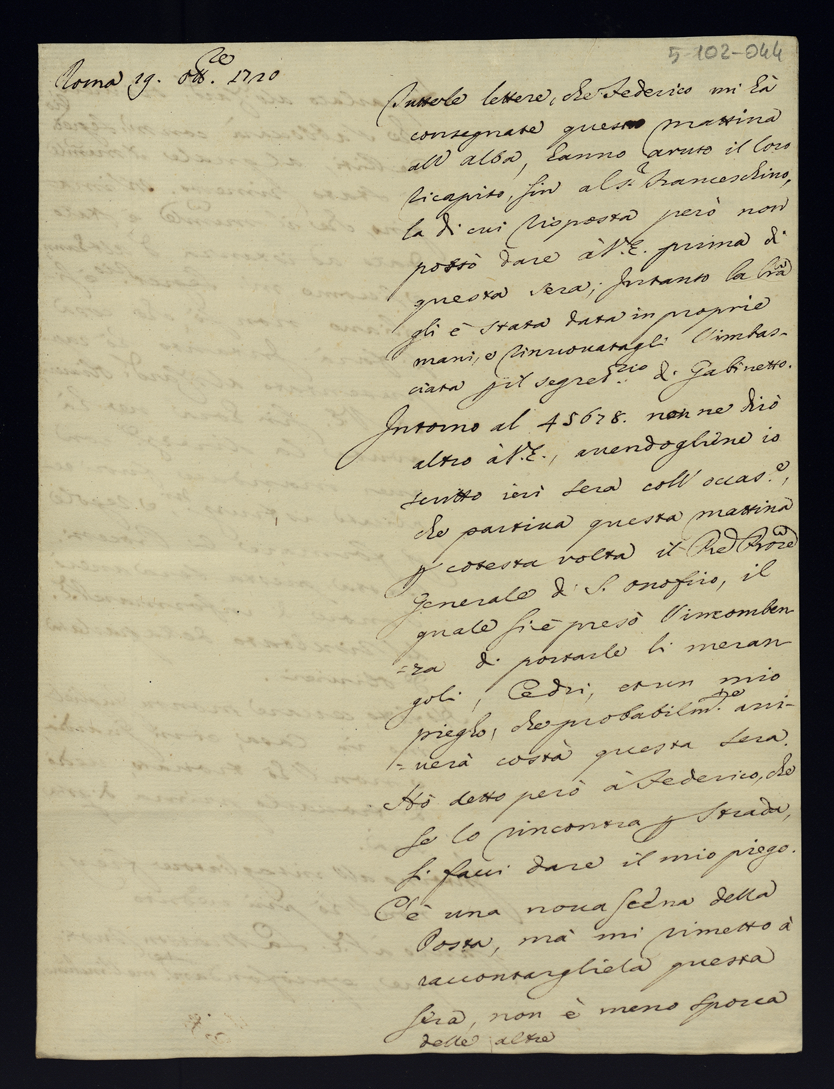 5-102-044
Roma 19. Ott.re 1720
Tutte le lettere, che Federico mi hà
consegnate questa mattina
all' alba, hanno avuto il loro
ricapito, sin al S.r Franceschino,
la di cui risposta però non
possò dare à V.E. prima di
questa sera; Intanto la l'ra
gli è stata data in proprie
mani, e rinuovatagli l'imbas-
ciata p il segret.rio di Gabinetto.
Intorno al 45678. non ne dirò
altro à V.E., avendogliene io
scritto ieri sera coll' occas.e,
che partiva questa mattina
p cotesta volta il Pre
Generale di S. Onofrio, il
quale si è presò l'incomben-
=za di portarle li meran-
goli, Cedri, et un mio
piegho, che probabilm.te arri-
=verà costà questa sera.
Hò detto però à Federico, che
se lo rincontra p strada,
si facci dare il mio piego.
C'è una nova scena della
Posta, mà mi rimetto à
raccontargliela questa
sera, non è meno sporca
delle altre